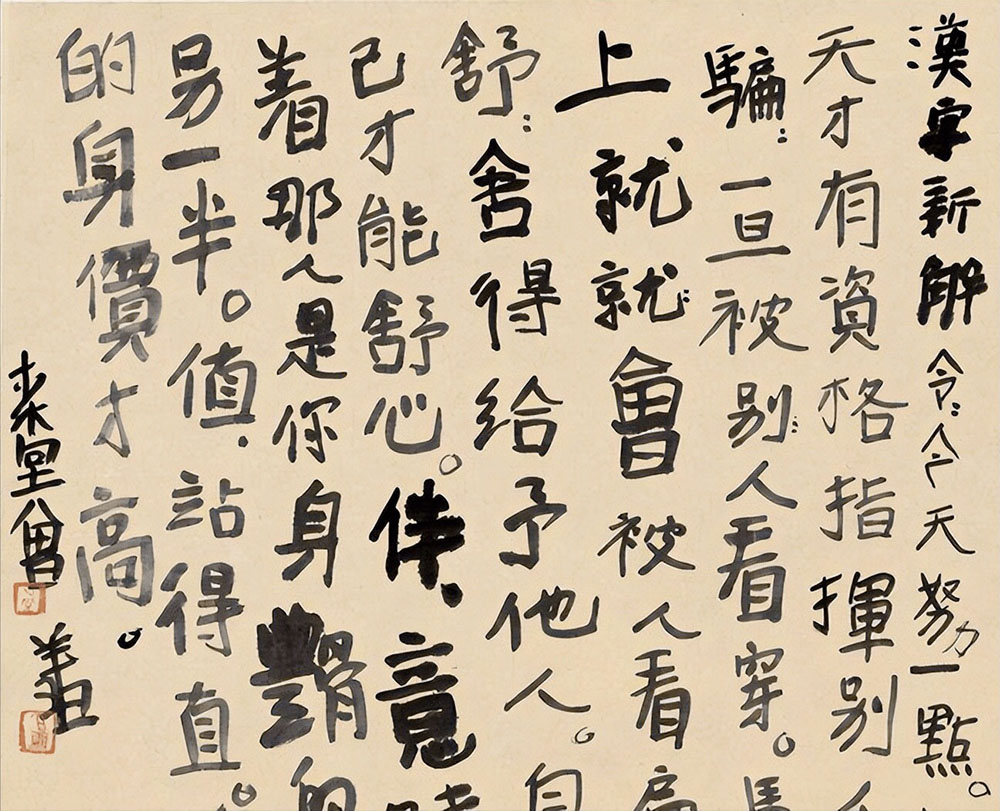 漢字新解 令：今天努力一點。
天才有資格指揮別人
騙：一旦被別人看穿。馬
上就就會被人看扁
舒：舍得給予他人。自
己才能舒心。伴、意味
着那人是你身體的
另一半。值、站得直。
的身價才高。
堂曾